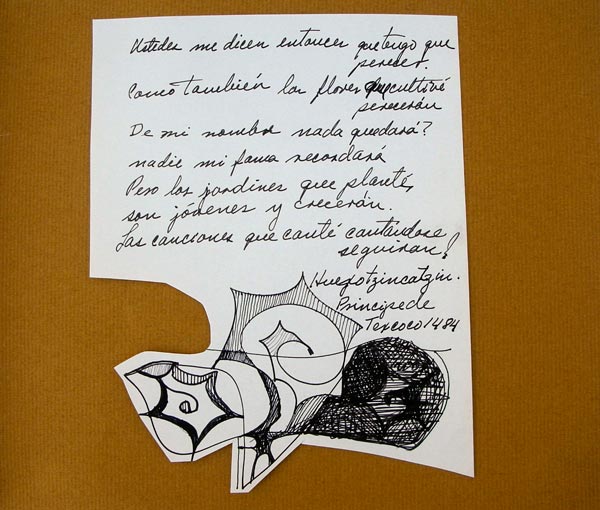 Ustedes me dicen entonces que tengo que
perecer.
Como también las flores que cultivé
perecerán
De mi nombre nada quedará?
nadie mi fama recordará
Pero los jardines que planté,
son jóvenes y crecerán.
Las canciones que canté cantándose
seguiran!
Huexotzincatzin.
Principe de
Texcoco 1484